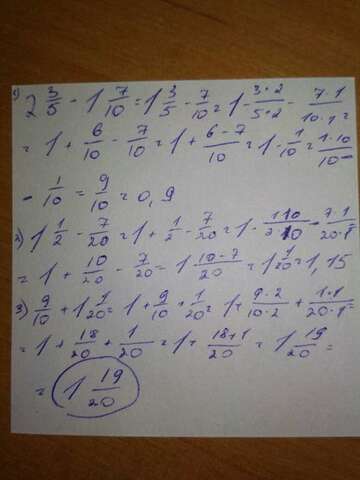 1) 2 3/5 - 1 7/10 = 1 3/5 - 7/10 = 1 - 3·2/5·2 - 7·1/10·1 =
= 1 + 6/10 - 7/10 = 1 + 6-7/10 = 1 - 1/10 = 1·10/10 -
- 1/10 = 9/10 = 0,9
2) 1 1/2 - 7/20 = 1 + 1/2 - 7/20 = 1 - 1·10/2·10 - 7·1/20·1
= 1 + 10/20 - 7/20 = 1 10-7/20 = 1 1/20 = 1,15
3) 9/10 + 1 1/20 = 1 + 9/10 + 1/20 = 1 + 9·2/10·2 + 1·1/20·1 =
= 1 + 18/20 + 1/20 = 1 + 18+1/20 = 1 19/20 =
= 1 19/20